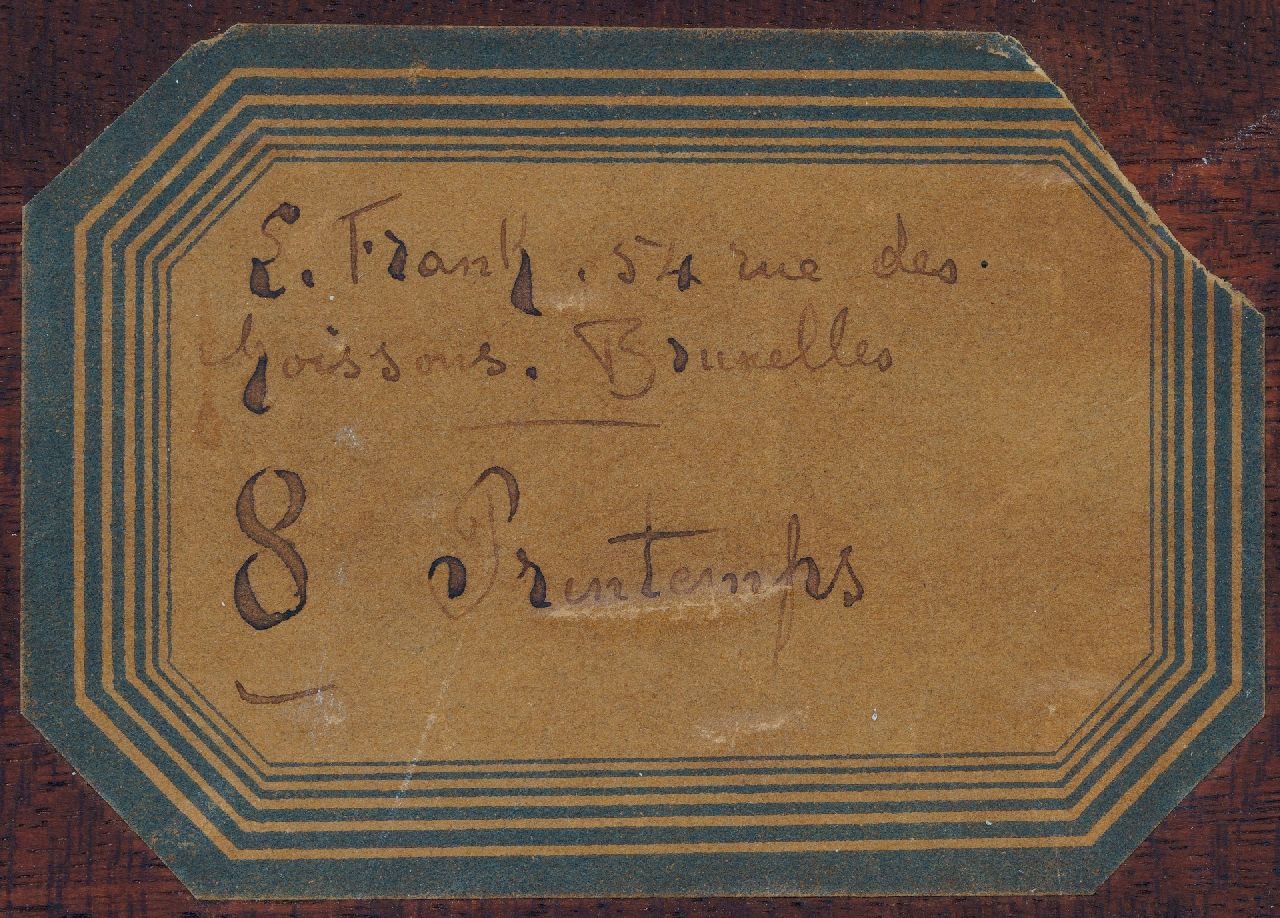 E. Frank. 54 rue des
Moissons. Bruxelles
8 Printemps